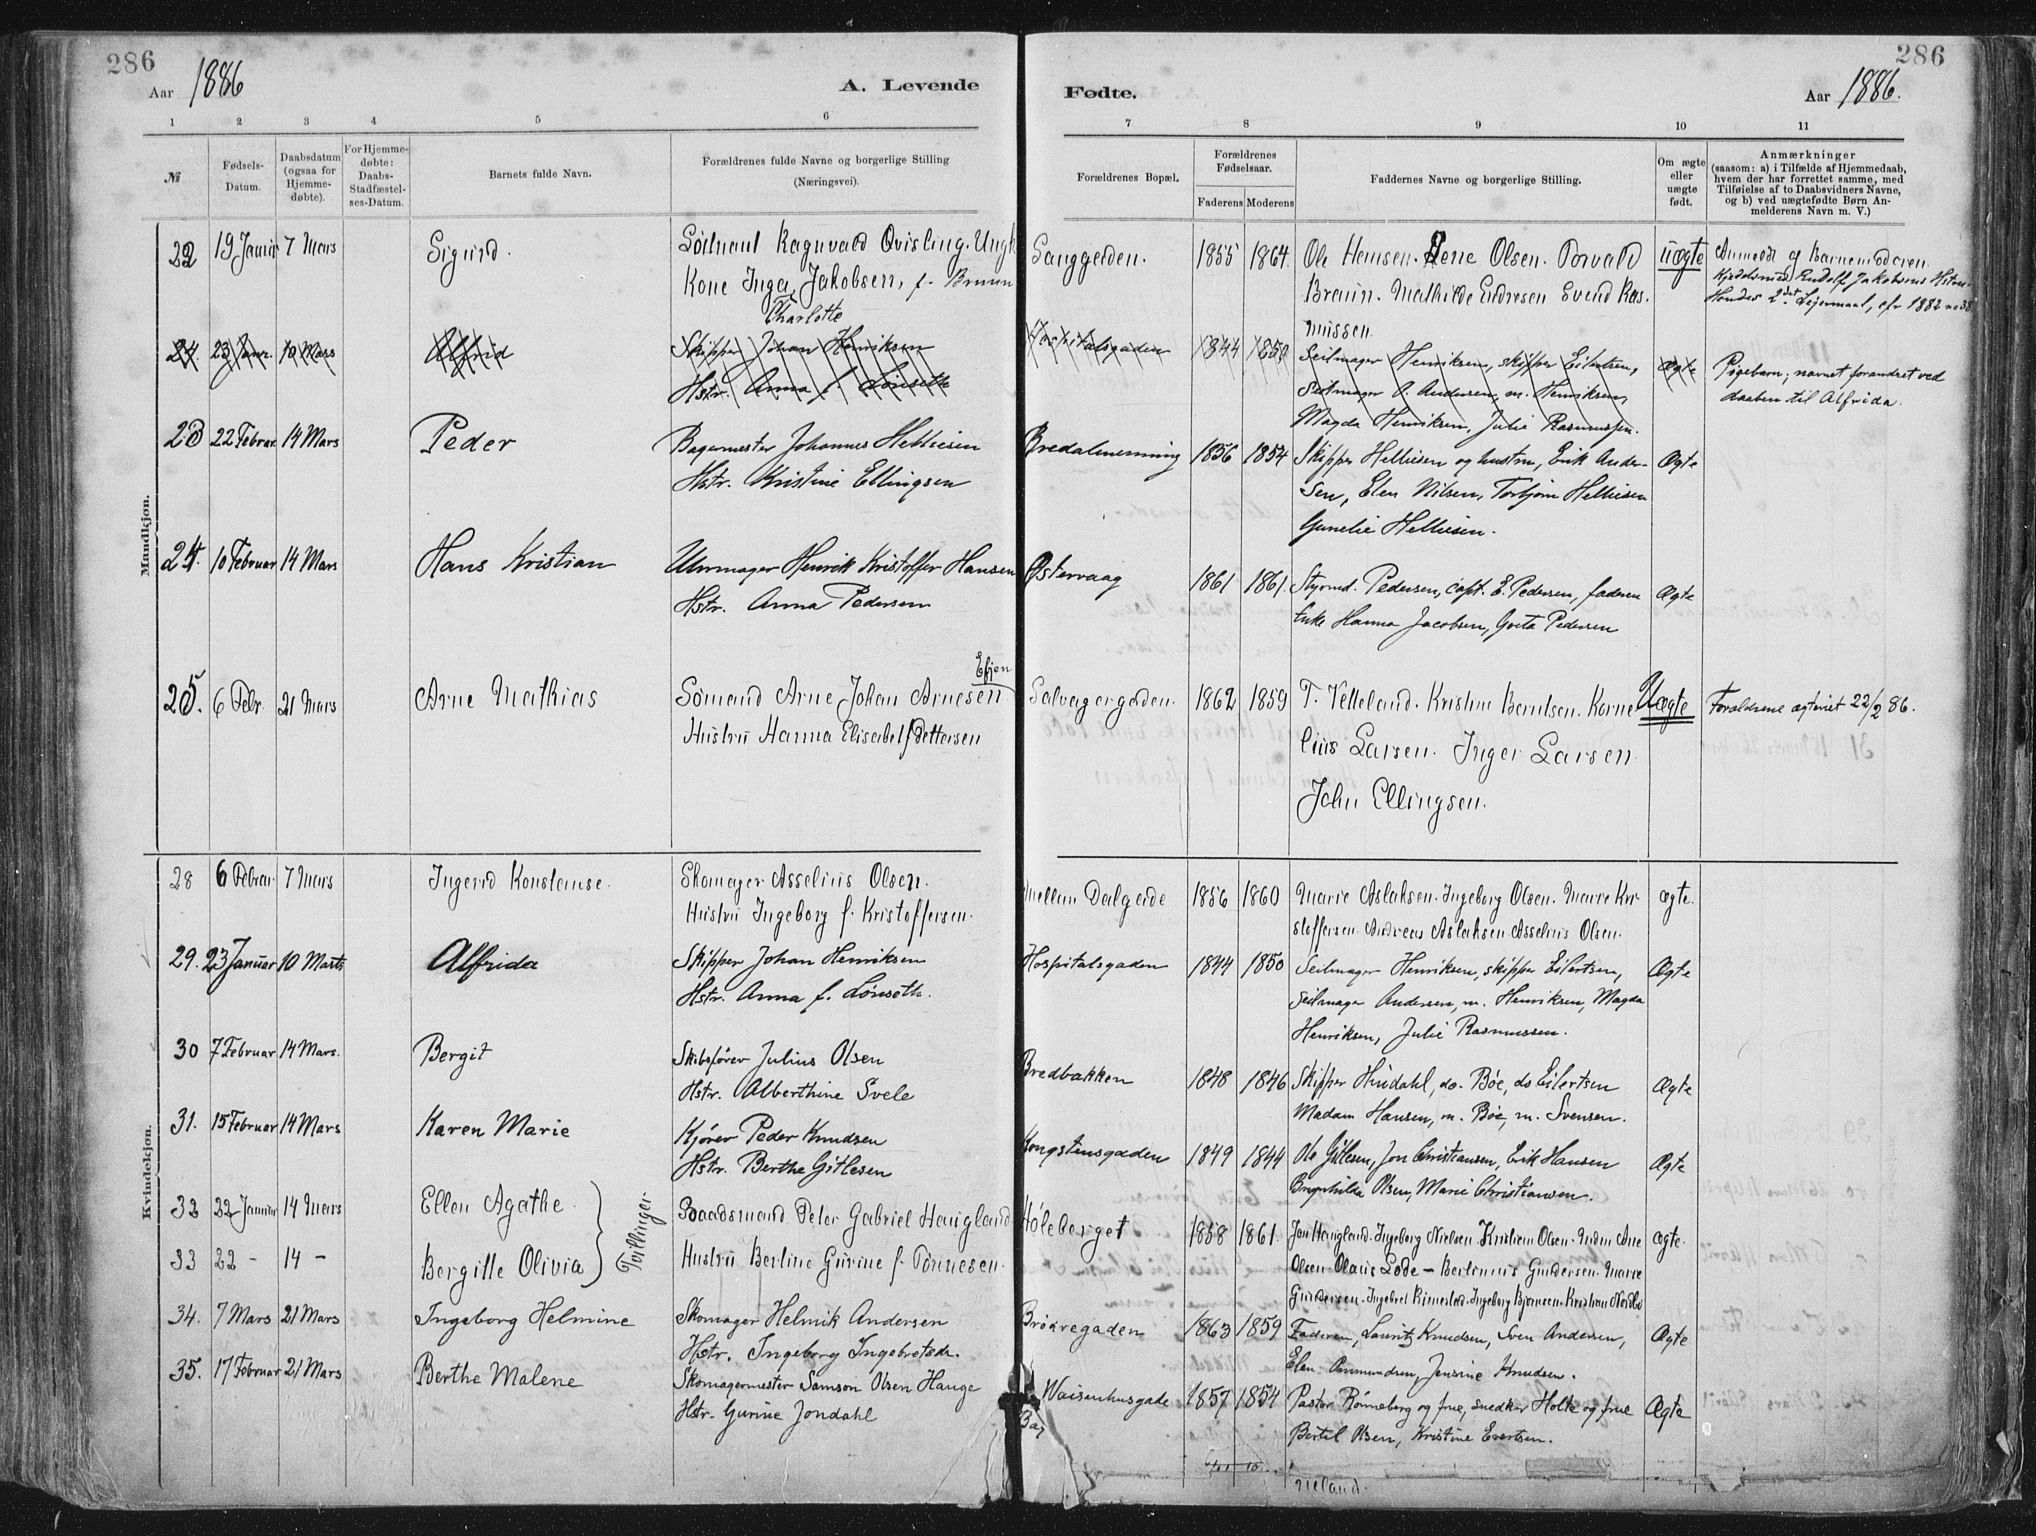 286
286
Aar 1886
A. Levende
Fødte.
Aar 1886.
1 2 3 4 5 6 7 8 9 10 11
№
Fødsels-Datum.
Daabsdatum (ogsaa for Hjemme-døbte).
For Hjemme-døbte: Daabs-Stadfæstel-ses-Datum.
Barnets fulde Navn.
Forældrenes fulde Navne og borgerlige Stilling (Næringsvei).
Forældrenes Bopæl.
Forældrenes Fødselsaar.
Faderens Moderens
Faddernes Navne og borgerlige Stilling.
Om ægte eller uægte født.
Anmærkninger
(saasom: a) i Tilfælde af Hjemmedaab,
hvem der har forrettet samme, med
Tilføielse af to Daabsvidners Navne,
og b) ved uægtefødte Børn An-
melderens Navn m. V.)
Mandkjøn.
22 19 Januar 7 Mars Sigurd. Ragnvald Qvisling. Ungk 1855 1864 Ole Hansen. Lene Olsen. Torvald uægte Anmeldt af Barnemoderen
Kone Inga Jakobsen, f. Bruun Braun. Mathilde Endresen Svend Ras-
Charlotte missen.
Rudolf Jakobsens Hstru
Hendes 2det Leiermaal, cfr 1882 no 38
24. 23 Janr. 10 Mars Alfrid Skipper Johan Henriksen Hospitalsgaden 1844 1850 Seilmager Henriksen, skipper Eilertsen, Ægte Pigebarn; navnet forandret ved
Hstr. Anna f. Lönseth Seilmager A. Andersen, m. Henriksen, daaben til Alfrida.
Magda Henriksen, Julie Rasmussen.
23 22 Februar 14 Mars Peder Bagermester Johannes Helliesen Bredalmenning 1856 1854 Skipper Helliesen og hustru, Erik Ander- Ægte
Hstr. Kristine Ellingsen sen, Elen Nilsen, Torbjørn Helliesen
Gunelie Helliesen.
24. 10 Februar 14 Mars Hans Kristian Uhrmager Henrik Kristoffer Hansen Østervaag 1861 1861. Styrmd. Pedersen, capt. E. Pedersen, faderen Ægte
Hstr. Anna Pedersen Enke Hanna Jacobsen, Greta Pedersen
25. 6 Febr. 21 Mars Arne Mathias Sømand Arne Johan Arnesen 1862 1859 T. Vetteland. Kristine Berntsen. Korne- Uægte Forældrene ægteviet 22/2 86.
Hustru Hanna Elisabet Pettersen lius Larsen. Inger Larsen
John Ellingsen.
Kvindekjøn.
28 6 Februar 7 Mars Ingerid Konstanse. Skomager Asselius Olsen. Mellem Dalgade 1856 1860 Marie Aslaksen. Ingeborg Olsen. Marie Kri- ægte.
Hustru Ingeborg f. Kristoffersen. stoffersen. Andreas Aslaksen. Asselius Olsen.
29. 23 Januar 10 Marts Alfrida Skipper Johan Henriksen Hospitalsgaden 1844 1850 Seilmager Henriksen, skipper Eilertsen, Ægte
Hstr. Anna f. Lönseth. Seilmager Andersen, m. Henriksen, Magda
Henriksen, Julie Rasmussen.
30 7 Februar 14 Mars. Bergit Skibsfører Julius Olsen Bredbakken 1848 1846 Skipper Hindahl, do. Bøe, do Eilertsen Ægte
Hstr. Alberthine Svele Madam Hansen, m. Bøe, m. Svensen.
31. 15 Februar 14 Mars Karen Marie Kjører Peder Knudsen Kongstensgaden 1849 1844 Ole Gitlesen, Jon Christiansen, Erik Hansen Ægte
Hstr. Berthe Gitlesen Brynhilda Olsen, Marie Christiansen.
32 22 Januar 14 Mars Ellen Agathe. Tvillinger Baadsmand Peter Gabriel Haugland Høleberget 1858 1861. Jon Haugland. Ingeborg Nielsen. Kristian Olsen. ægte.
33 22 - 14 - Bergitte Olivia Hustru Berline Gurine f. Tønnesen. Olsen Olaus Lode - Berlinius Gundersen. Marie
Gundersen. Ingebret Rimestad. Ingeborg Bjørnsen. Kristian
34. 7 Mars 21 Mars Ingeborg Helmine Skomager Helmik Andersen Brødregaden 1863 1859 Faderen, Lauritz Knudsen, Sven Andersen, Ægte
Hstr. Ingeborg Ingebretsdr. Elen Ammundsen, Jensine Knudsen.
35. 17 Februar 21 Mars Berthe Malene Skomagermester Samson Olsen Hauge Waisenhusgade 1857 1854 Pastor Rönneberg og frue, snedker Holte og frue Ægte
Hstr. Gurine Jondahl Bertil Olsen, Kristine Evertsen.